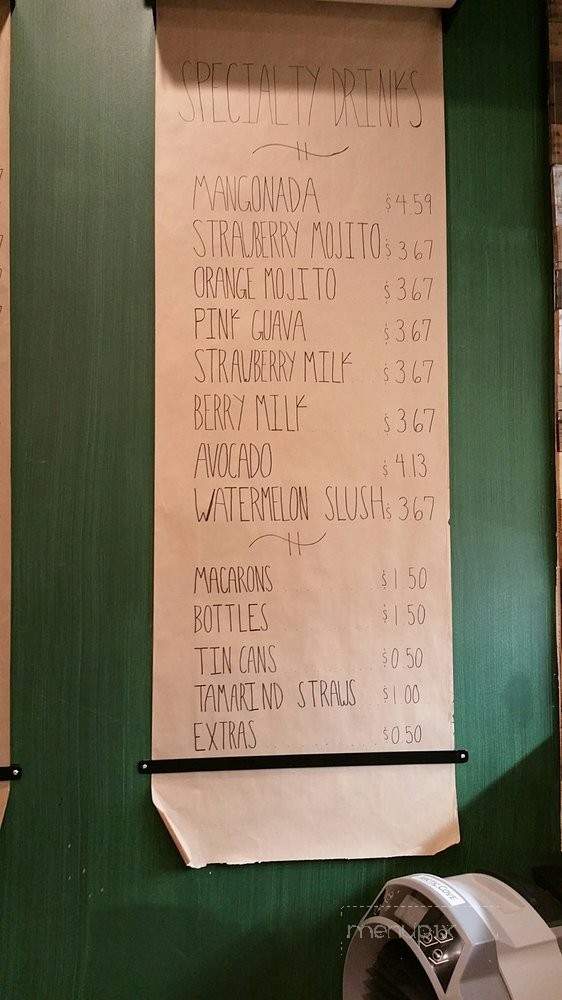 SPECIALTY DRINKS
MANGONADA $4.59
STRAWBERRY MOJITO $3.67
ORANGE MOJITO $3.67
PINK GUAVA $3.67
STRAWBERRY MILK $3.67
BERRY MILK $3.67
AVOCADO $4.13
WATERMELON SLUSH $3.67
MACARONS $1.50
BOTTLES $1.50
TIN CANS $0.50
TAMARIND STRAWS $1.00
EXTRAS $0.50
menupix